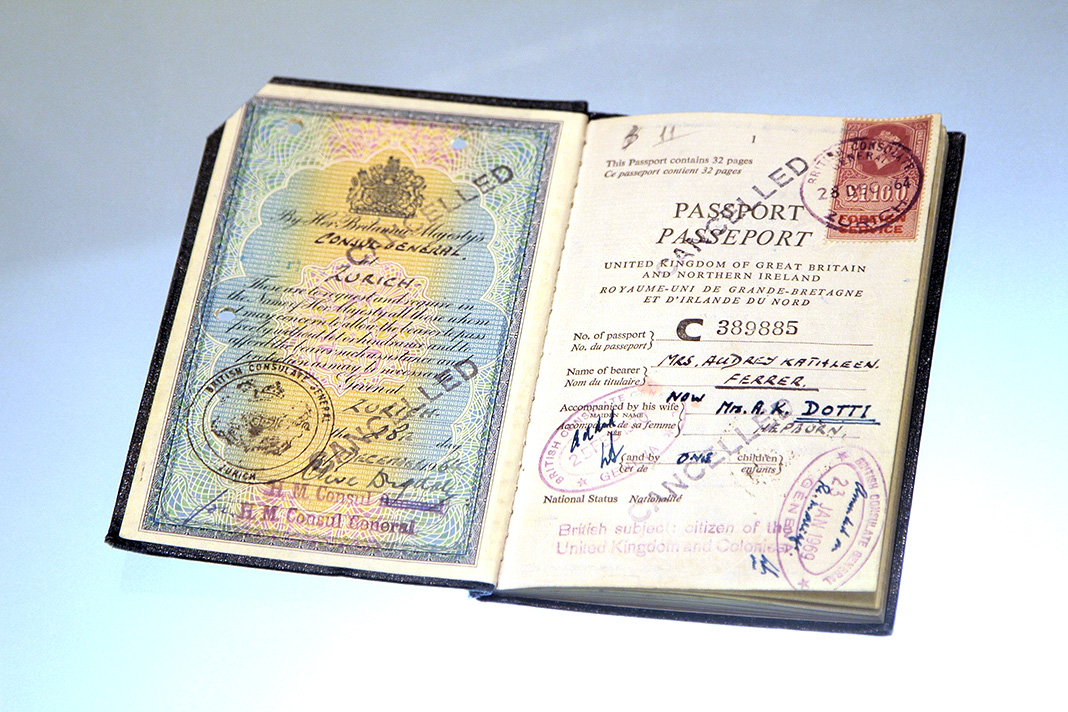 By Her Britannic Majesty's
CONSUL-GENERAL
at
ZURICH
These are to request and require in
the Name of Her Majesty all those whom
it may concern to allow the bearer to pass
freely without let or hindrance and to
afford
protection as may be necessary.
Given at
ZURICH
CANCELLED
CANCELLED
BRITISH CONSULATE-GENERAL
ZURICH
H. M. Consul
H. M. Consul General
1
This Passport contains 32 pages
Ce passeport contient 32 pages
BRITISH CONSULATE
GENERAL
£1 10 0
ZURICH
FOREIGN
SERVICE
CANCELLED
PASSPORT
PASSEPORT
UNITED KINGDOM OF GREAT BRITAIN
AND NORTHERN IRELAND
ROYAUME-UNI DE GRANDE-BRETAGNE
ET D'IRLANDE DU NORD
No. of passport
No. du passeport
C 389885
Name of bearer
Nom du titulaire
MRS. AUDREY KATHLEEN
FERRER.
NOW Mrs. A. K. DOTTI
Accompanied by his wife
MAIDEN NAME
Accompagné de sa femme
NÉE
HEPBURN.
and by ONE children
et de enfants
CANCELLED
BRITISH CONSULATE GENERAL
GENEVA
National Status Nationalité
British subject: citizen of the
United Kingdom and Colonies
BRITISH CONSULATE GENERAL
23 JAN 1969
GENEVA